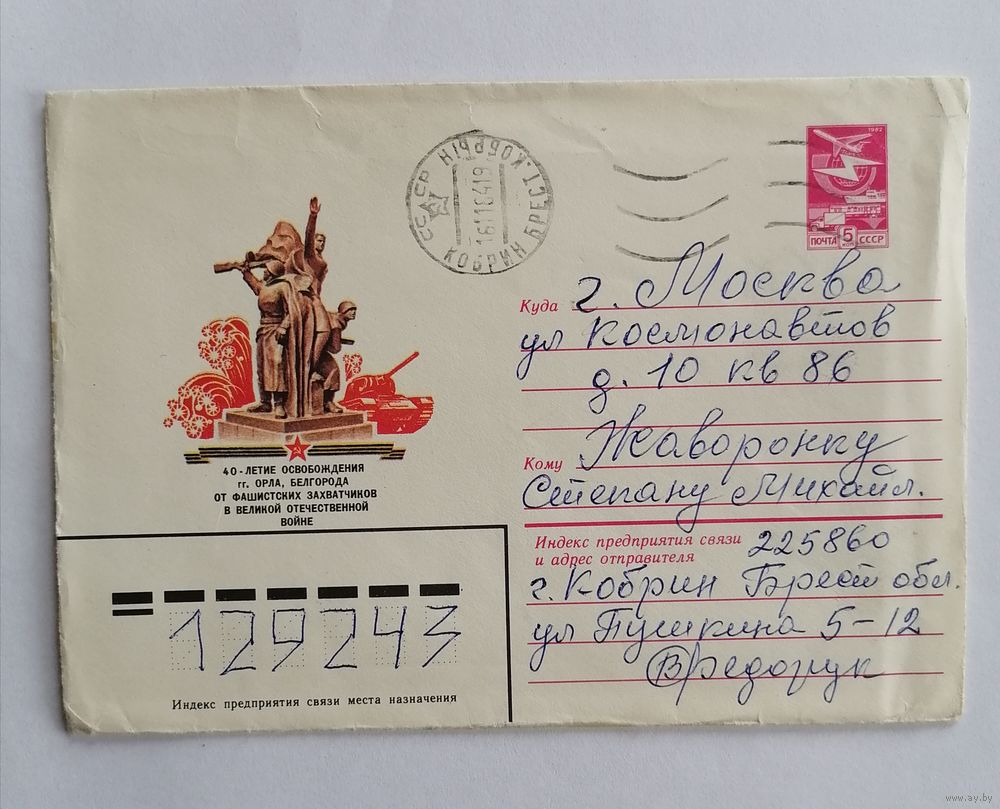 СССР КОБРЫН БРЕСТ. КОБРИН
1611 8419
1982
ПОЧТА 5 КОП СССР
Куда г. Москва
ул Космонавтов
д. 10 кв 86
Кому Жаворонку
Степану Михайл.
40-ЛЕТИЕ ОСВОБОЖДЕНИЯ
гг. ОРЛА, БЕЛГОРОДА
ОТ ФАШИСТСКИХ ЗАХВАТЧИКОВ
В ВЕЛИКОЙ ОТЕЧЕСТВЕННОЙ
ВОЙНЕ
Индекс предприятия связи
и адрес отправителя
225860
г. Кобрин Брест обл.
ул Пушкина 5-12
В Федорук
129243
Индекс предприятия связи места назначения
www.ay.by